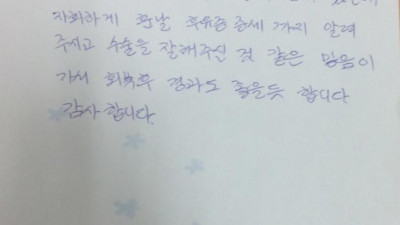 자회하게 훗날 후유증 증세 까지 알려
주시고 수술을 잘해주신 것 같은 믿음이
가서 회복후 경과도 좋을듯 합니다
감사합니다.